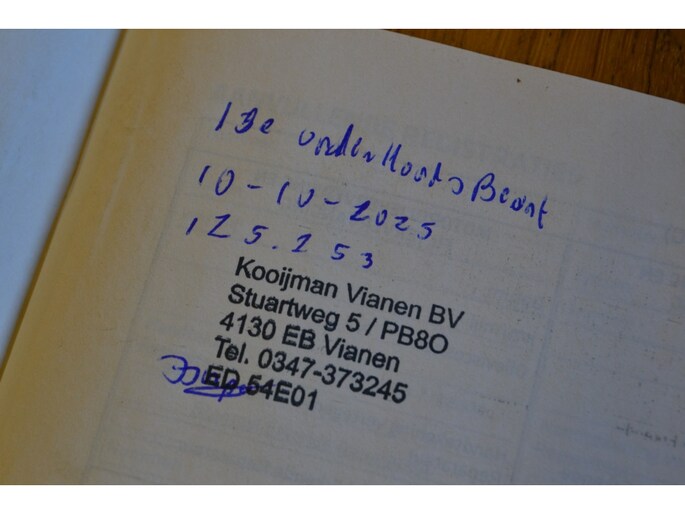 13e onderhouds Beurt
10-10-2025
125.253
Kooijman Vianen BV
Stuartweg 5 / PB80
4130 EB Vianen
Tel. 0347-373245
ED 54E01